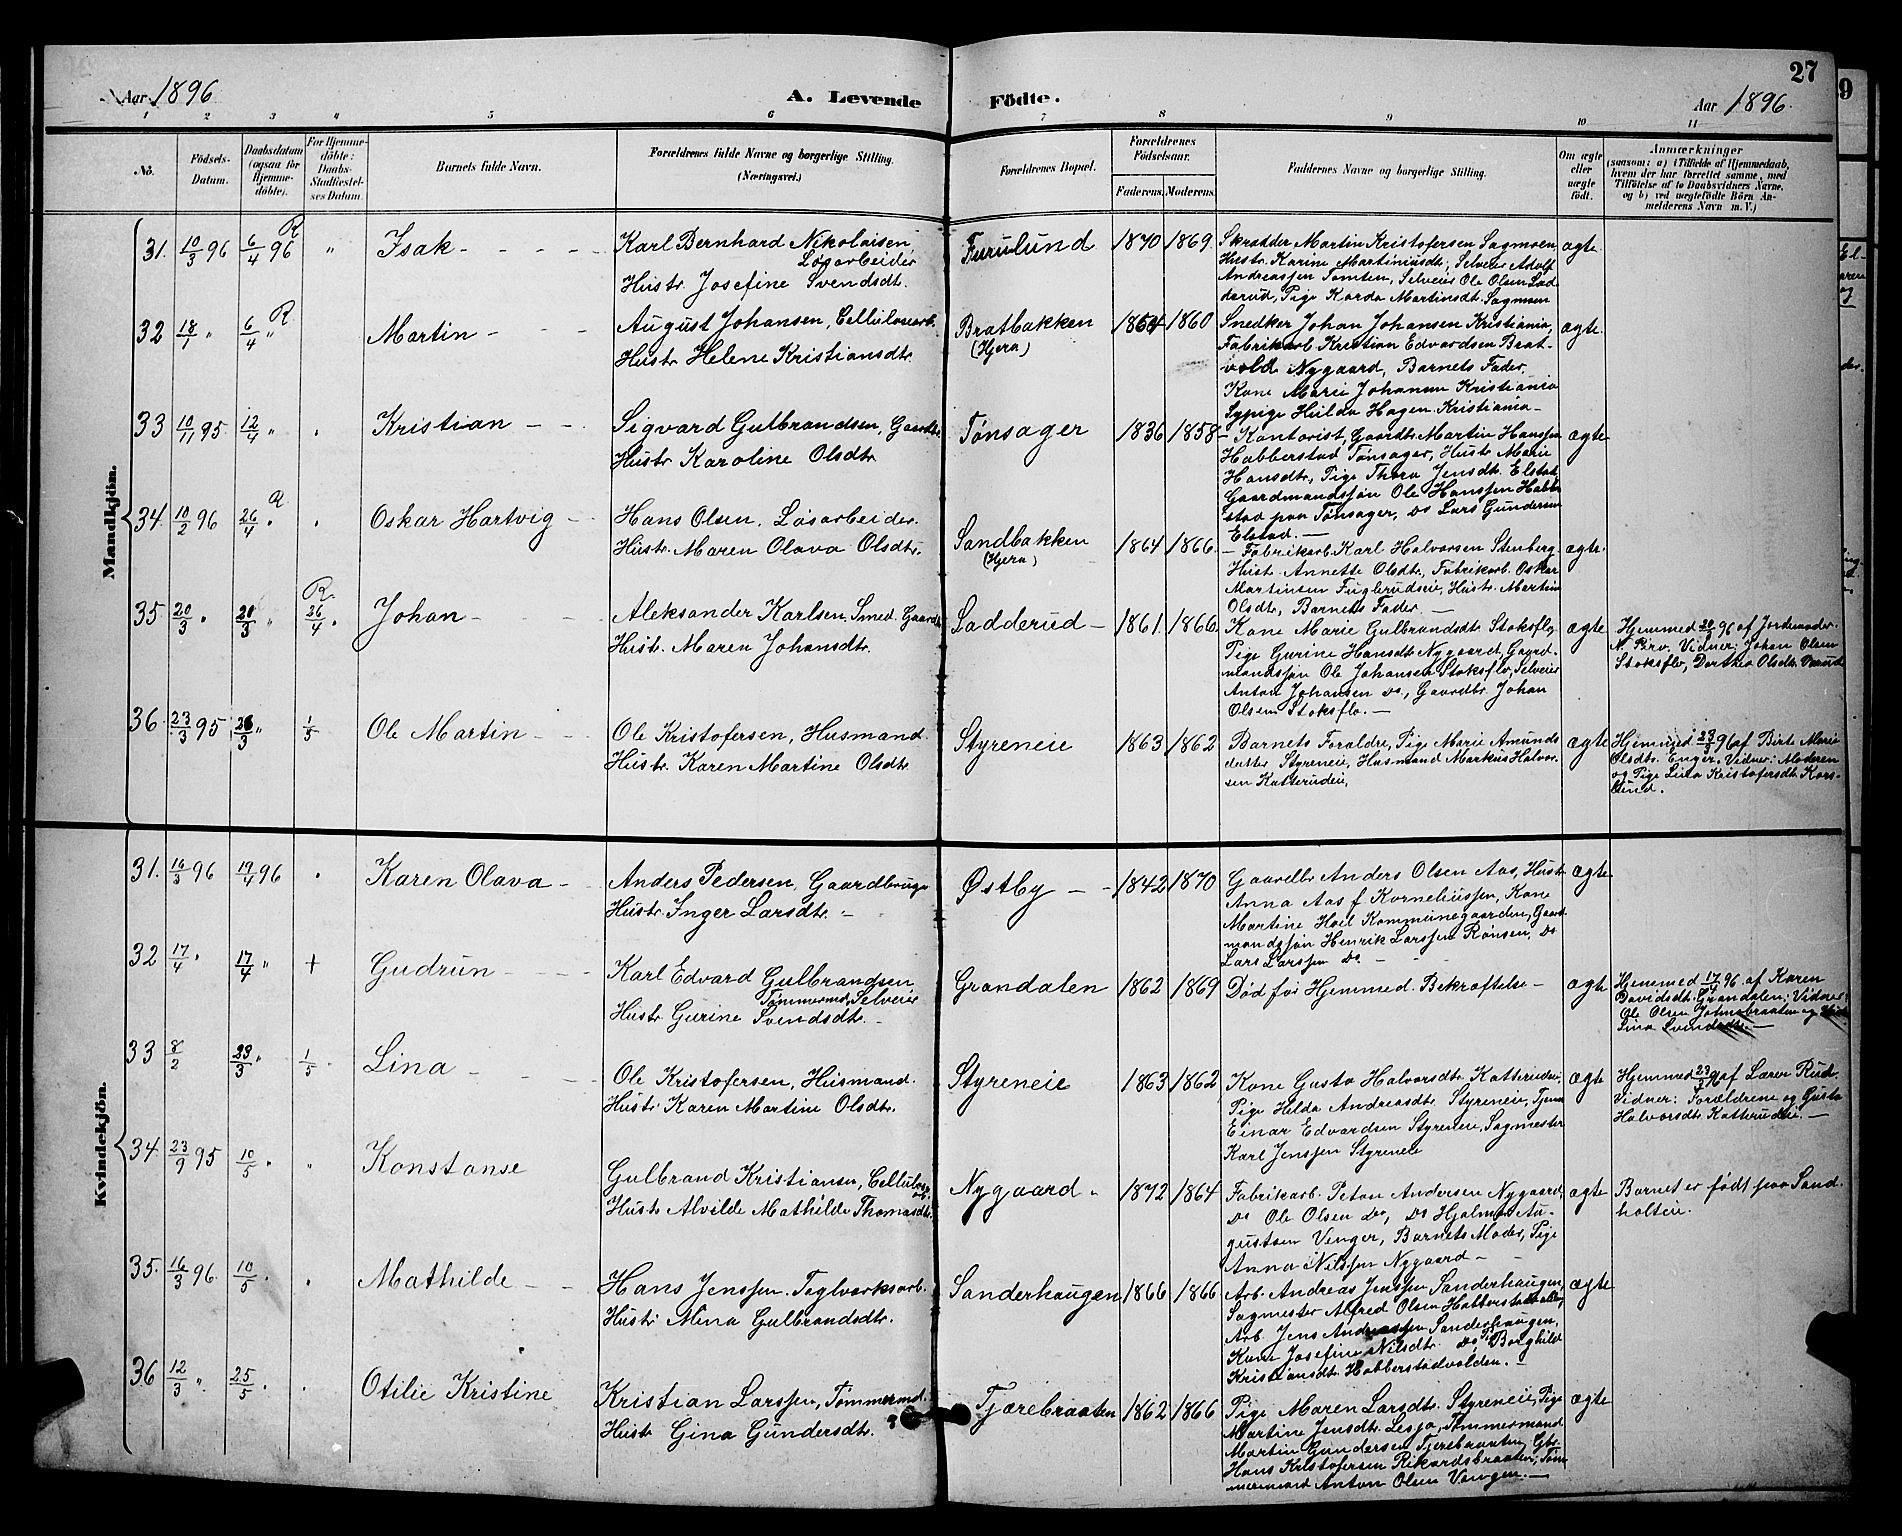 Aar 1896
A. Levende
Födte.
27
Aar 1896.
1 2 3 4 5 6 7 8 9 10 11
No.
Födsels-
Datum.
Daabsdatum
(ogsaa for
Hjemme-
döbte).
For Hjemme-
döbte:
Daabs-
Stadfæstel-
ses Datum.
Barnets fulde Navn.
Forældrenes fulde Navne og borgerlige Stilling.
(Næringsvei.)
Forældrenes Bopæl.
Forældrenes
Födselsaar.
Faderens. Moderens.
Faddernes Navne og borgerlige Stilling.
Om ægte
eller
uægte
födt.
Anmærkninger
(saasom: a) i Tilfælde af Hjemmedaab,
hvem der har forrettet samme, med
Tilföielse af to Daabsvidners Navne,
og b) ved uægtefödte Börn An-
melderens Navn m. V.)
Mandkjön.
31. 10/3 96 6/4 96 R " Isak
Karl Bernhard Nikolaisen,
Løsarbeider
Hustr. Josefine Svendsdt.
Furulund 1870 1869.
Skrædder Martin Kristofersen Sagmoen
Hustr. Karine Martiniusdt., Selveier Adolf
Andreassen Tomten, Selveier Ole Olsen Lad-
derud, Pige Karda Martinsdt. Sagmoen
ægte
32 18/1 " 6/4 " R Martin
August Johansen, Cellulosearb.
Hustr. Helene Kristiansdtr.
Bratbakken
(Hjera)
1864 1860
Snedker Johan Johansen Kristiania,
Fabrikarb. Kristian Edvardsen Brat-
vold Nygaard, Barnets Fader,
Kone Marie Johansen Kristiania
Sypige Hulda Hagen Kristiania
ægte.
33 10/11 95. 12/4 " " Kristian
Sigvard Gulbrandsen, Gaardbr.
Hustr. Karoline Olsdtr.
Tønsager 1836 1858
Kontorist, Gaardbr. Martin Hanssen
Habberstad Tønsager, Hustr. Marie
Hansdtr., Pige Thora Jensdt. Elstad,
Gaardmandssøn Ole Hanssen Habber-
stad paa Tønsager, do Lars Gundersen
Elstad.
ægte
34. 10/2 96 26/4 " R " Oskar Hartvig
Hans Olsen, Løsarbeider.
Hustr. Maren Olava Olsdtr.
Sandbakken
(Hjera)
1864 1866.
Fabrikarb. Karl Halvorsen Stenberg
Hustr. Annette Olsdtr., Fabrikarb. Oskar
Martinsen Fuglerudeie, Hustr. Martin
Olsdtr., Barnets Fader.
ægte.
35 20/3 " 20/3 " R 26/4 " Johan
Aleksander Karlsen, Smed. Gaardbr.
Hustr. Maren Johansdtr.
Ladderud 1861. 1866.
Kone Marie Gulbrandsdt. Stoksflo,
Pige Gurine Hansdt. Nygaard, Gaard-
mandssøn Ole Johansen Stoksflo, Selveier
Anton Johansen do, Gaardbr. Johan
Olsen Stoksflo.
ægte
Hjemmed 20/3 96 af Jordemoder
N. Bro. Vidner: Johan Olsen
Stoksflo, Dorthea Olsdt.
36 23/3 95 23/3 " 1/5 Ole Martin
Ole Kristofersen, Husmand
Hustr. Karen Martine Olsdtr.
Styreneie 1863. 1862
Barnets Forældre, Pige Marie Amunds-
datter Styreneie, Husmand Markus Halvor-
sen Katterudeie,
ægte
Hjemmed 23/3 96 af Birte Marie
Olsdtr. Enger. Vidner: Moderen
og Pige Lina Kristofersdt. Kors-
lund.
Kvindekjön.
31. 16/3 96 19/4 96 " Karen Olava
Anders Pedersen, Gaardbruger
Hustr. Inger Larsdtr.
Østby 1842 1870
Gaardbr. Anders Olsen Aas, Hustr.
Anna Aas f Korneliussen, Kone
Martine Hoel Kommunegaarden, Gaard-
mandssøn Henrik Larssen Rønsen, do
Lars Larssen do
ægte
32 17/4 " 17/4 " + Gudrun
Karl Edvard Gulbrandsen
Tømmermd, Selveier
Hustr. Gurine Svendsdtr.
Grandalen 1862 1869
Død før Hjemmed. Bekræftelse
ægte
Hjemmed 17/4 96 af Karen
Davidsdt. Grandalen: Vidner:
Ole Olsen Johnsbraaten og
Lina Svendsdtr.
33 8/2 23/3 " 1/5 Lina
Ole Kristofersen, Husmand.
Hustr. Karen Martine Olsdtr.
Styreneie 1863 1862
Kone Gusta Halvorsdt. Katterudeie,
Pige Hilda Andreasdt. Styreneie, Tjener
Einar Edvardsen Styreneie, Sagmester
Karl Jenssen Styreneie
ægte
Hjemmed 23/3 96 af Lærer Rud.
Vidner: Forældrene og Gusta
Halvorsdt. Katterudeie.
34 23/9 95 10/5 " " Konstanse
Gulbrand Kristiansen, Cellulosearb.
Hustr. Alvilde Mathilde Thomasdtr.
Nygaard 1872 1864
Fabrikarb. Peton Andersen Nygaard,
do Ole Olsen do, do Hjalmar Au-
gustsen Venger, Barnets Moder, Pige
Anna Nilssen Nygaard
ægte
Barnet er født paa Sand-
holteie.
35. 16/3 96. 10/5 " " Mathilde
Hans Jenssen. Teglværksarb.
Hustr. Mina Gulbrandsdtr.
Sanderhaugen 1866 1866
Arb. Andreas Jenssen Sanderhaugen,
Sagmester Alfred Olsen Habberstadvolden,
Arb. Jens Andreassen Sanderhaugen,
Kone Josefine Nilsdtr. do, Pige Borghild
Kristiansdt. Habberstadvolden.
ægte
36 12/3 " 25/5 " " Otilie Kristine
Kristian Larssen, Tømmermd.
Hustr. Gina Gundersdtr.
Tjærebraaten 1862 1866
Pige Maren Larsdt. Styreneie, Pige
Martine Jensdt. Lesja, Tømmermand
Martin Gundersen Tjærebraaten, Gbr.
Hans Kristofersen Rikardsbraaten, Tøm-
mermand Anton Olsen Vangen.
ægte